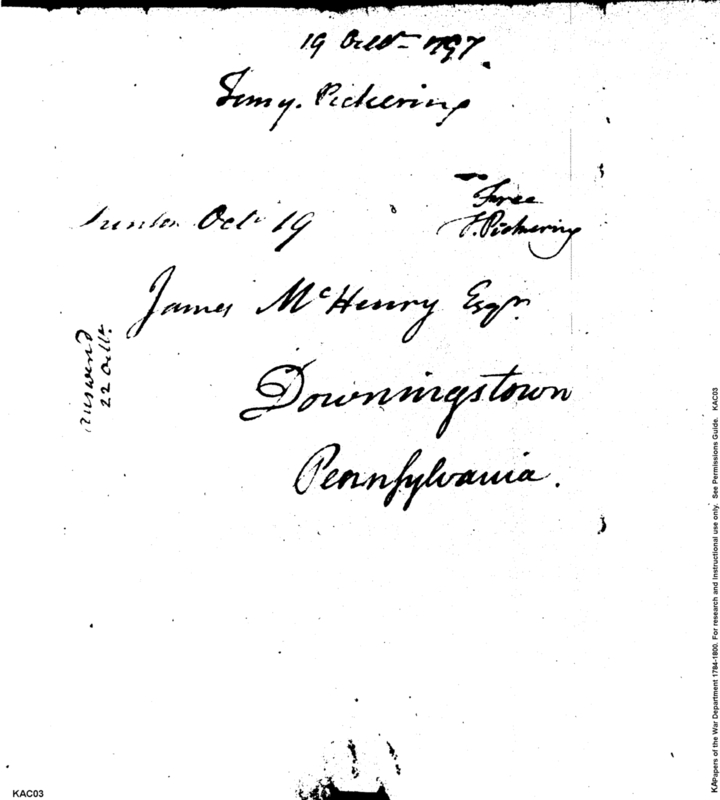 19 Octr 1797.
Timy. Pickering
Trenton Oct. 19
Free
T. Pickering
James McHenry Esqr.
Downingstown
Pennsylvania.
Answerd
22 Octr.
KAC03
Papers of the War Department 1784-1800. For research and Instructional use only. See Permissions Guide. KAC03